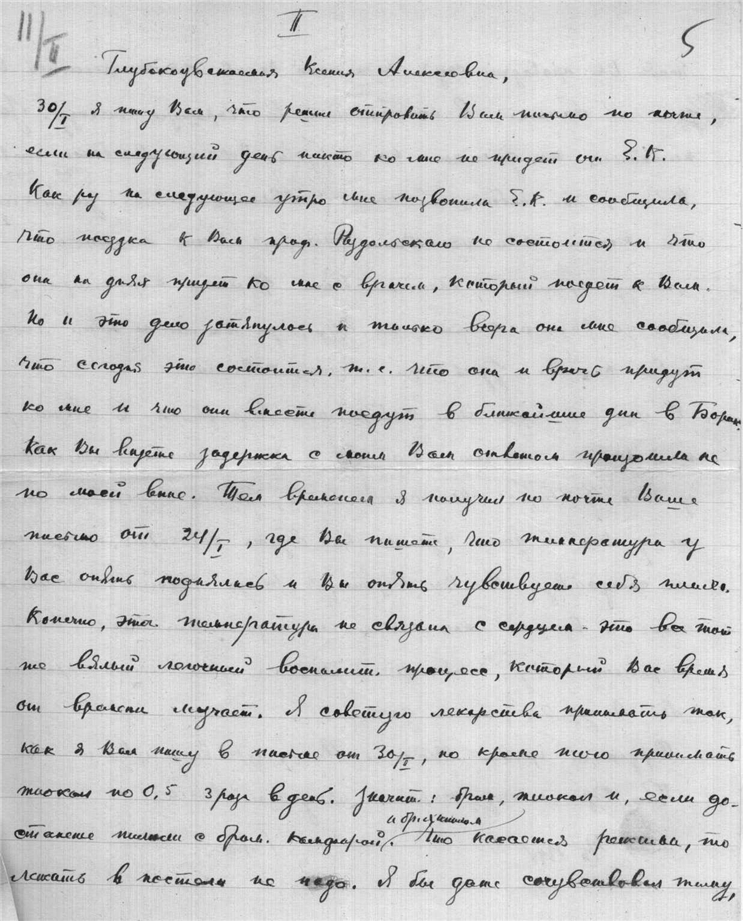 11/II
II
5
Глубокоуважаемая Ксения Алексеевна,
30/I я пишу Вам, что решил отправить Вам письмо по почте,
если на следующий день никто ко мне не придет от Е.К.
Как раз на следующее утро мне позвонила Е.К. и сообщила,
что поездка к Вам проф. Раздольского не состоится и что
она на днях придет ко мне с врачем, который поедет к Вам.
Но и это дело затянулось и только вчера она мне сообщила,
что сегодня это состоится, т.е. что она и врачь придут
ко мне и что они вместе поедут в ближайшие дни в
Как Вы видите задержка с моим Вам ответом произошла не
по моей вине. Тем временем я получил по почте Ваше
письмо от 24/I, где Вы пишете, что температура у
Вас опять поднялась и Вы опять чувствуете себя плохо.
Конечно, эта температура не связана с сердцем - это все тот
же вялый легочный воспалит. процесс, который Вас время
от времени мучает. Я советую лекарства принимать так,
как я Вам пишу в письме от 30/I, но кроме того принимать
тиокол по 0,5 3 раза в день. Значит: бром, тиокол и, если до-
станете пилюли с бром. камфарой
. Что касается режима, то
лежать в постели не надо. Я бы даже сочувствовал тому,